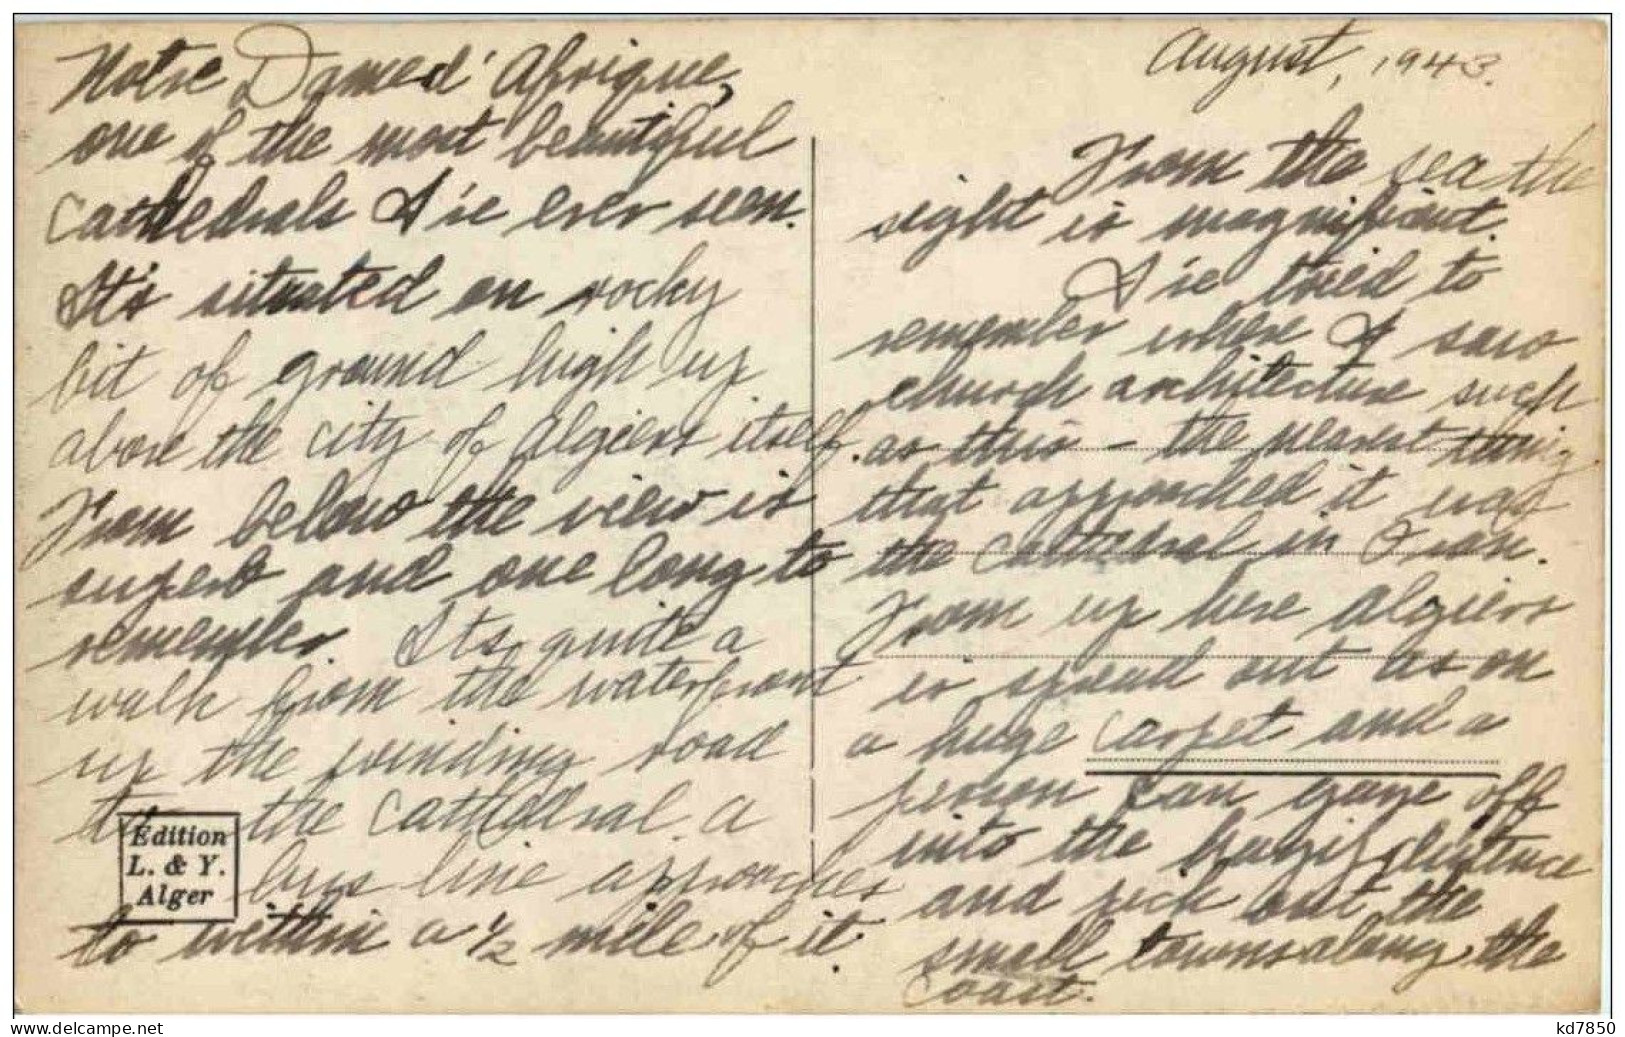 Notre Dame d'Afrique,
one of the most beautiful
Cathedrals I've ever seen.
It's situated on rocky
bit of ground high up
above the city of Algiers itself.
From below the view is
superb and one long to
remember. Its quite a
walk from the waterfront
up the winding road
to the Cathedral. A
bus line approaches
to within a 1/2 mile of it.
Edition
L. & Y.
Alger
August, 1943.
From the sea the
sight is magnificient.
I've tried to
remember where I saw
church architecture such
as this - the nearest thing
that approached it was
the Cathedral in Oran.
From up here Algiers
is spread out as on
a huge carpet and a
person can gaze off
into the hazy distance
and pick out the
small towns along the
coast.
kd7850